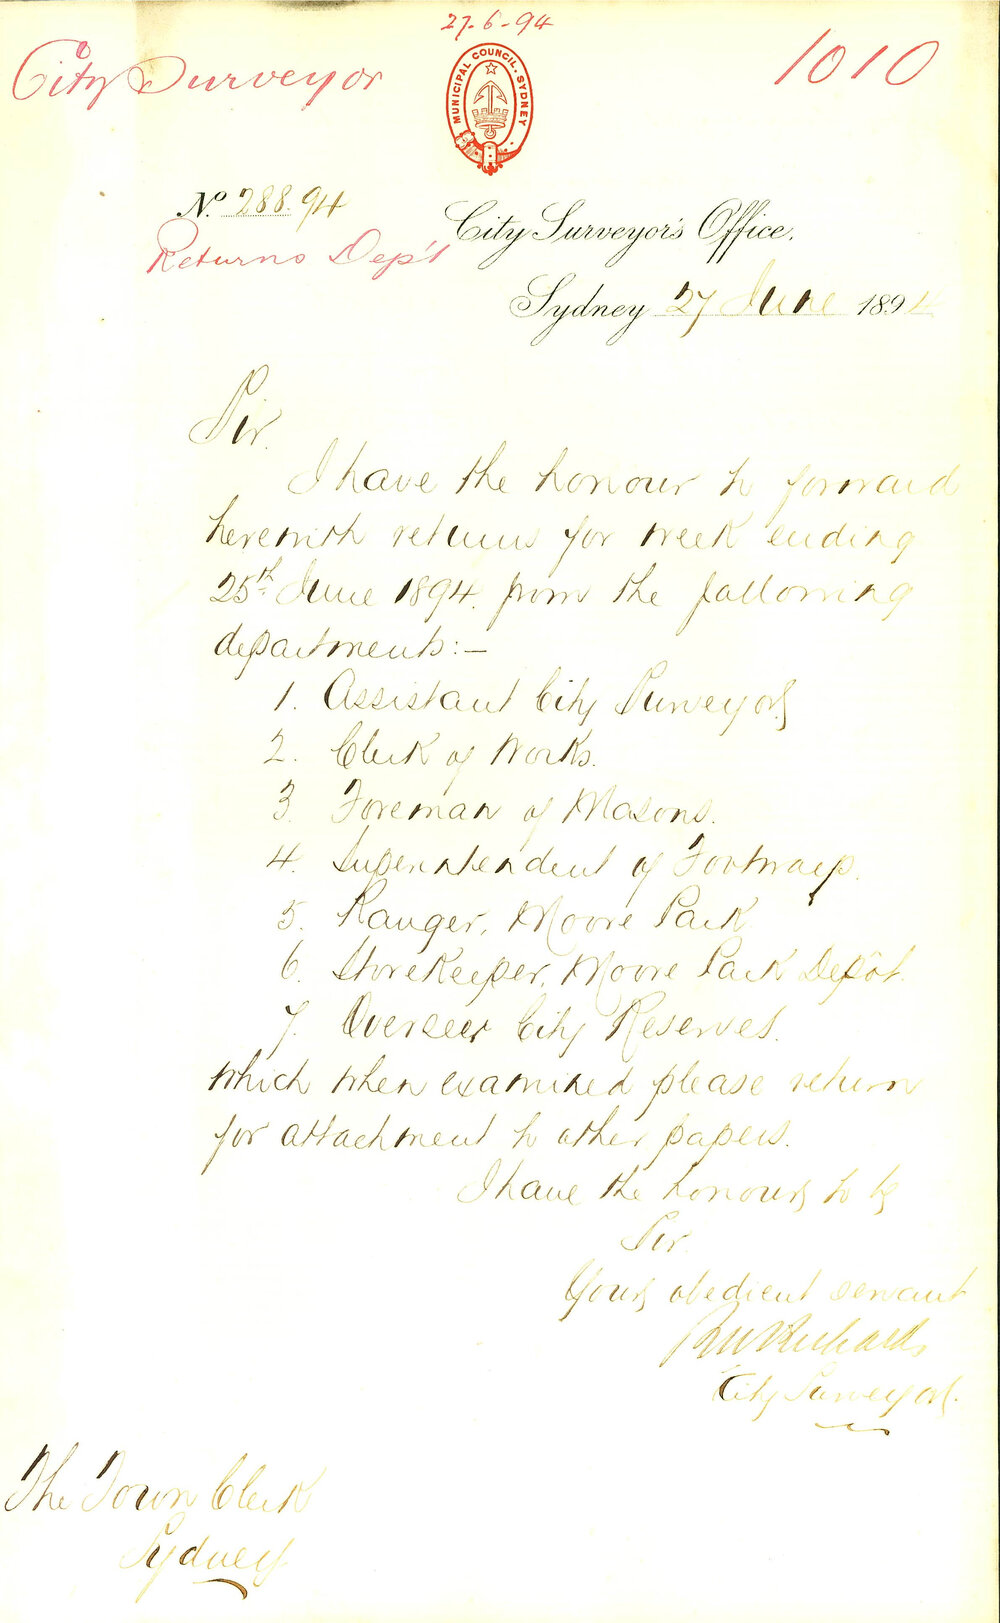 27-6-94
City Surveyor
1010
MUNICIPAL COUNCIL. SYDNEY
No. 288.94
City Surveyor's Office.
Returns Dep't
Sydney 27 June 1894
Sir.
I have the honour to forward
herewith returns for week ending
25th June 1894. from the following
departments:-
1. Assistant City Surveyor
2. Clerk of Works.
3. Foreman of Masons.
4. Superintendent of Footways.
5. Ranger, Moore Park
6. Storekeeper, Moore Park Depôt.
7. Overseer City Reserves.
which when examined please return
for attachment to other papers.
I have the honour to be
Sir.
Your obedient servant
RW Richards
City Surveyor.
The Town Clerk
Sydney